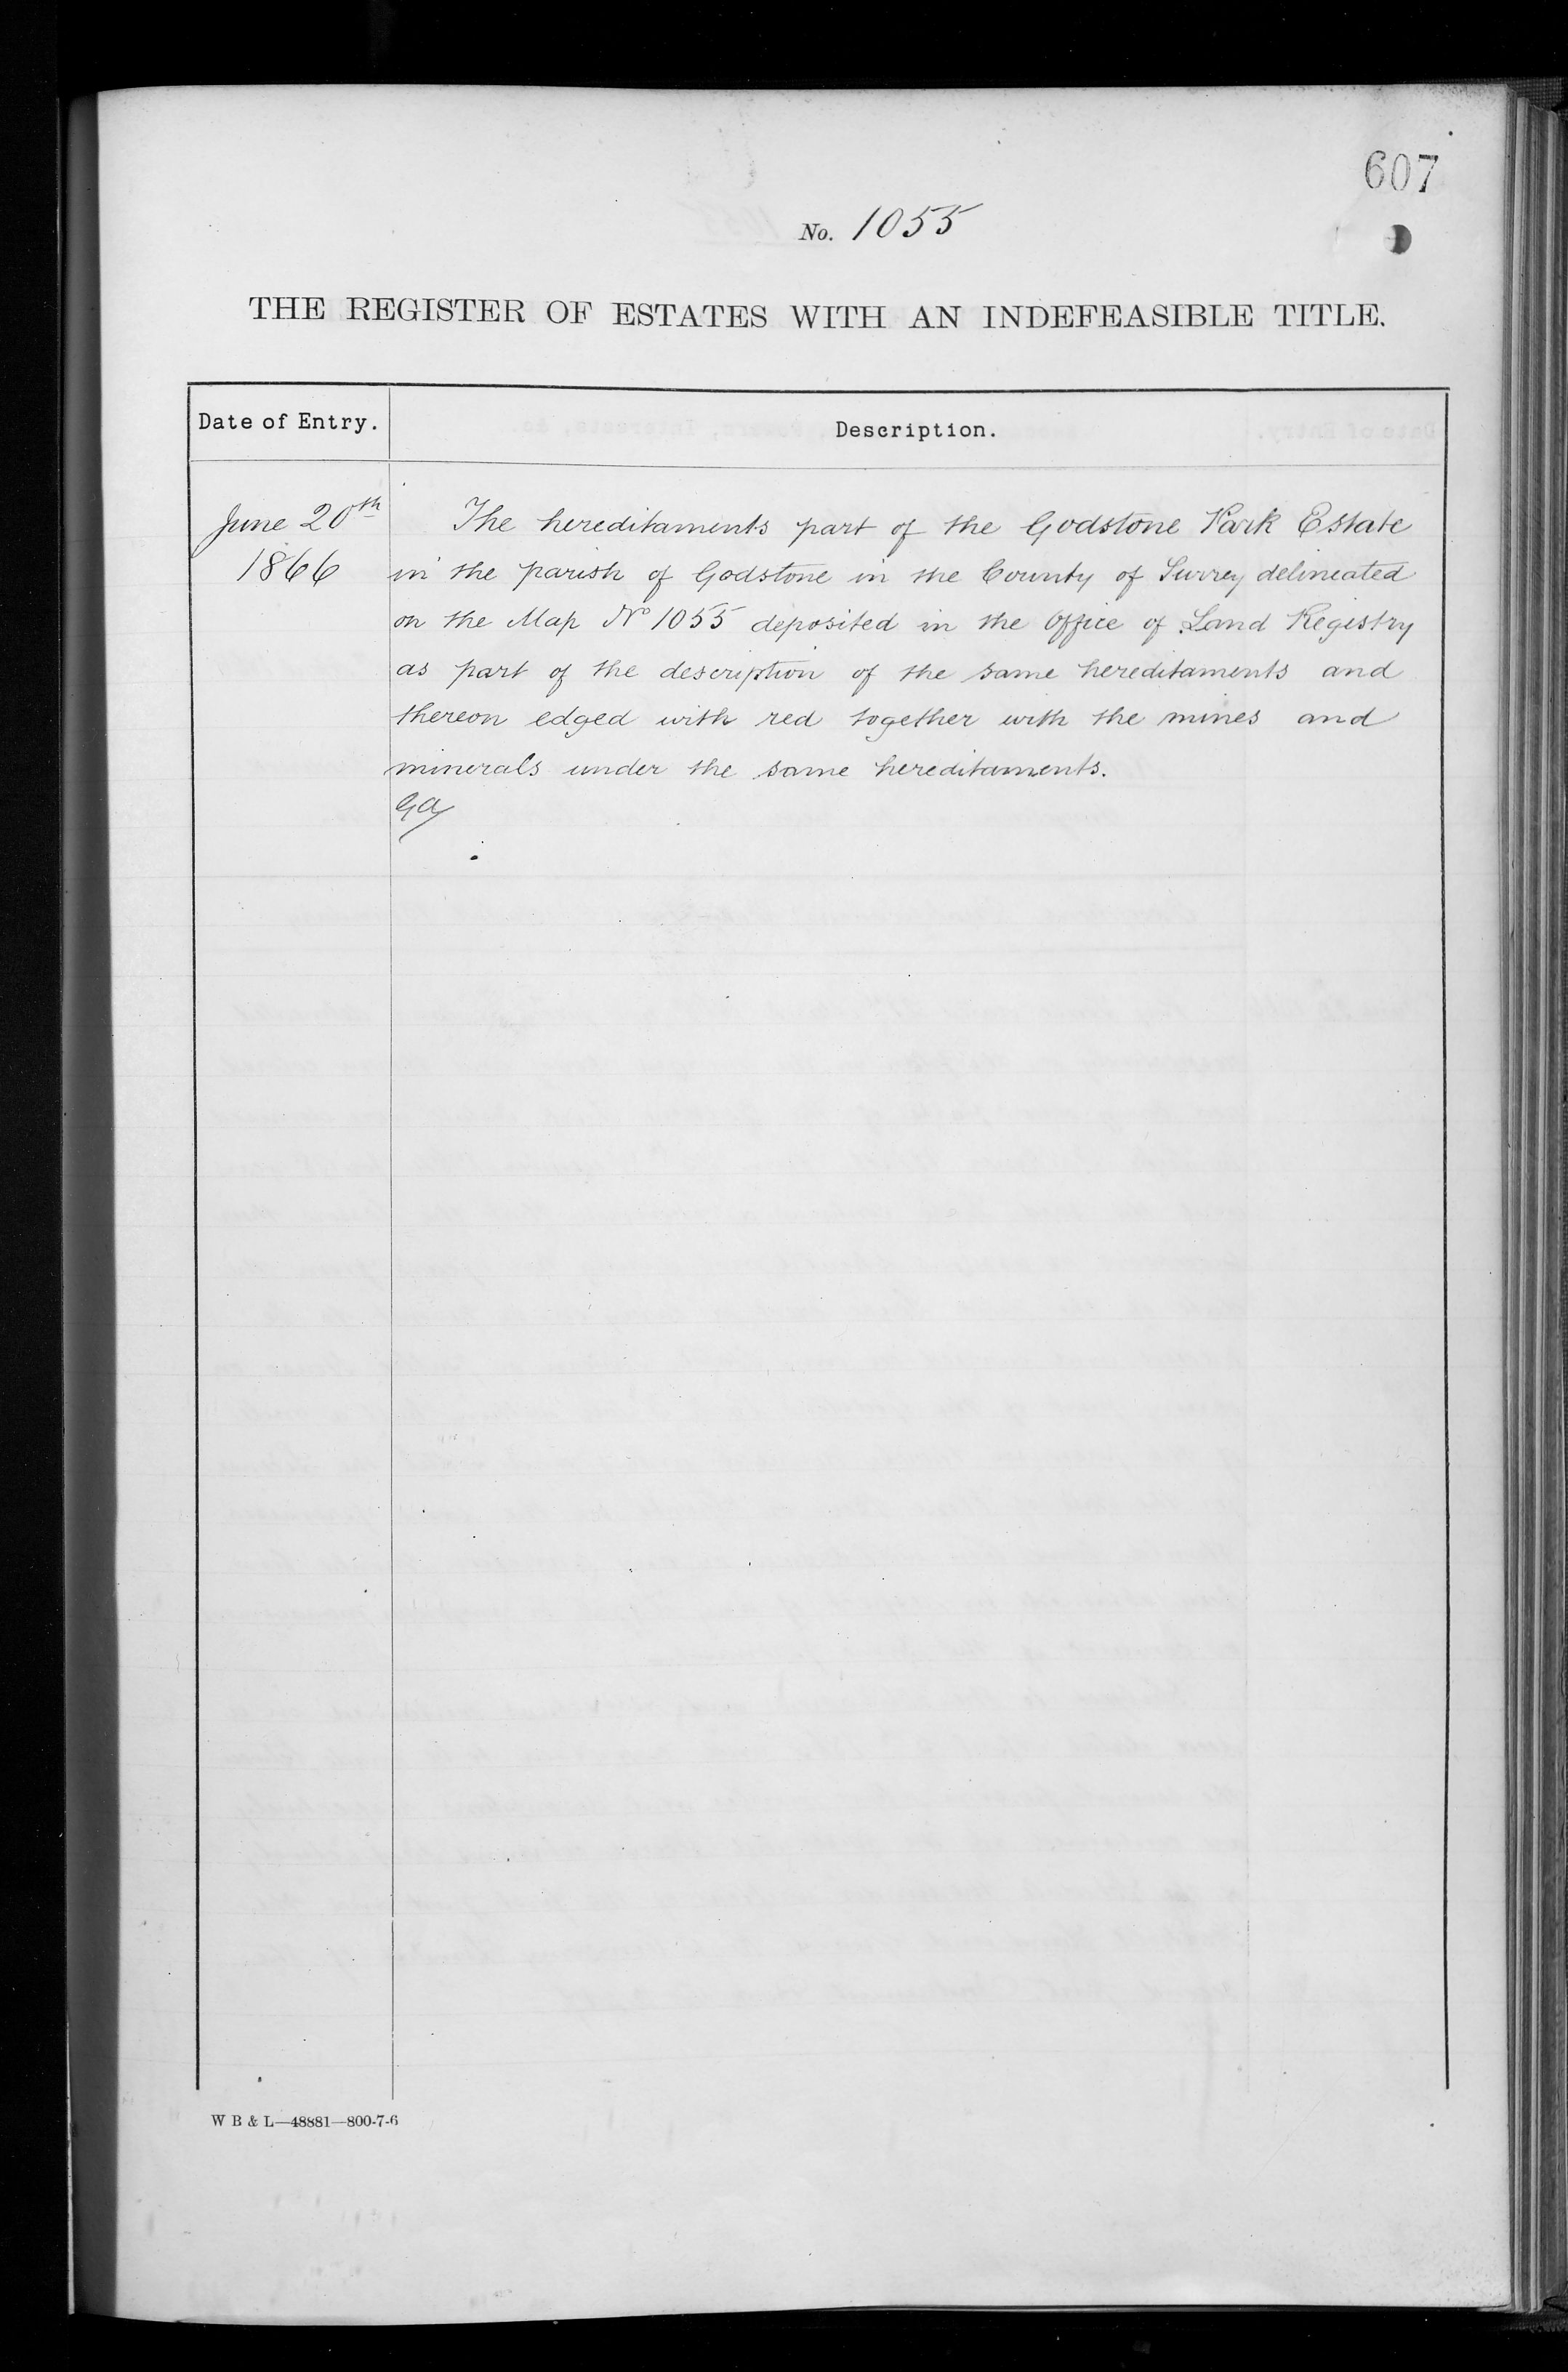 607
No. 1055
THE REGISTER OF ESTATES WITH AN INDEFEASIBLE TITLE.
Date of Entry.
Description.
June 20th
1866
The hereditaments part of the Godstone Park Estate
in the parish of Godstone in the County of Surrey delineated
on the Map No 1055 deposited in the Office of Land Registry
as part of the description of the same hereditaments and
thereon edged with red together with the mines and
minerals under the same hereditaments.
GA
W B & L—48881—800-7-6